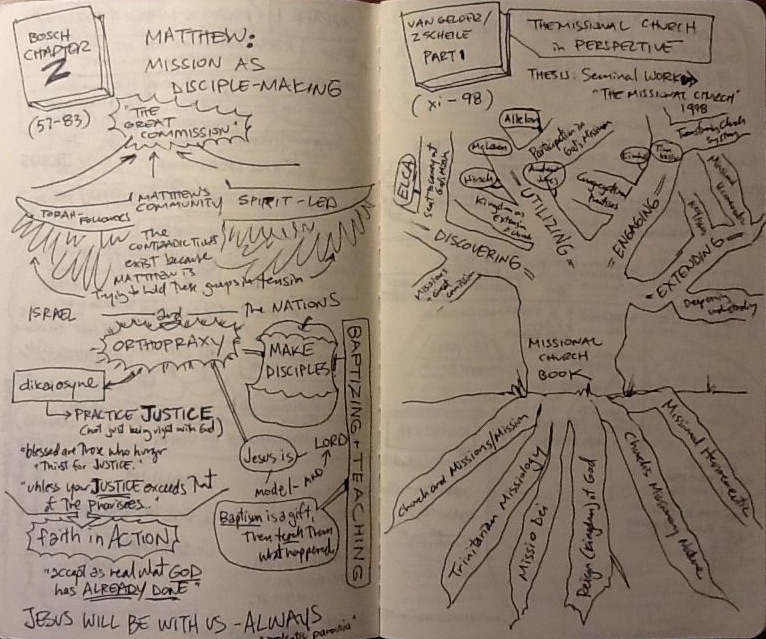 BOSCH
CHAPTER
2
MATTHEW:
MISSION AS
DISCIPLE-MAKING
(57-83)
"THE
GREAT
COMMISSION"
MATTHEW'S
COMMUNITY
TORAH-
FOLLOWERS
SPIRIT-LED
THE
CONTRADICTIONS
exist because
MATTHEW IS
Trying to hold these groups in tension
ISRAEL
and
the NATIONS
ORTHOPRAXY
MAKE
DISCIPLES
BAPTIZING + TEACHING
dikaiosyne
PRACTICE JUSTICE
(not just being right with God)
"blessed are those who hunger
+ thirst for JUSTICE."
"unless your JUSTICE exceeds that
of the Pharisees.."
Jesus is
LORD
model - AND
Baptism is a gift,
Then teach Them
what happened
faith in ACTION
"accept as real what GOD
has ALREADY DONE"
JESUS WILL BE WITH US - ALWAYS
parousia"
VAN GELDER/
ZSCHEILE
PART 1
THE MISSIONAL CHURCH
in PERSPECTIVE
(xi-98)
THESIS: Seminal WORK
"THE MISSIONAL CHURCH"
1998
ELCA
McLaren
Hirsch
Allelon
Participation in
God's Mission
DISCOVERING
UTILIZING
ENGAGING
EXTENDING
Missional
Deepening
understanding
MISSIONAL
CHURCH
BOOK
Church and Missions/Mission
Trinitarian Missiology
Missio Dei
Reign (kingdom) of God
Church's Missionary Nature
Missional Hermeneutic